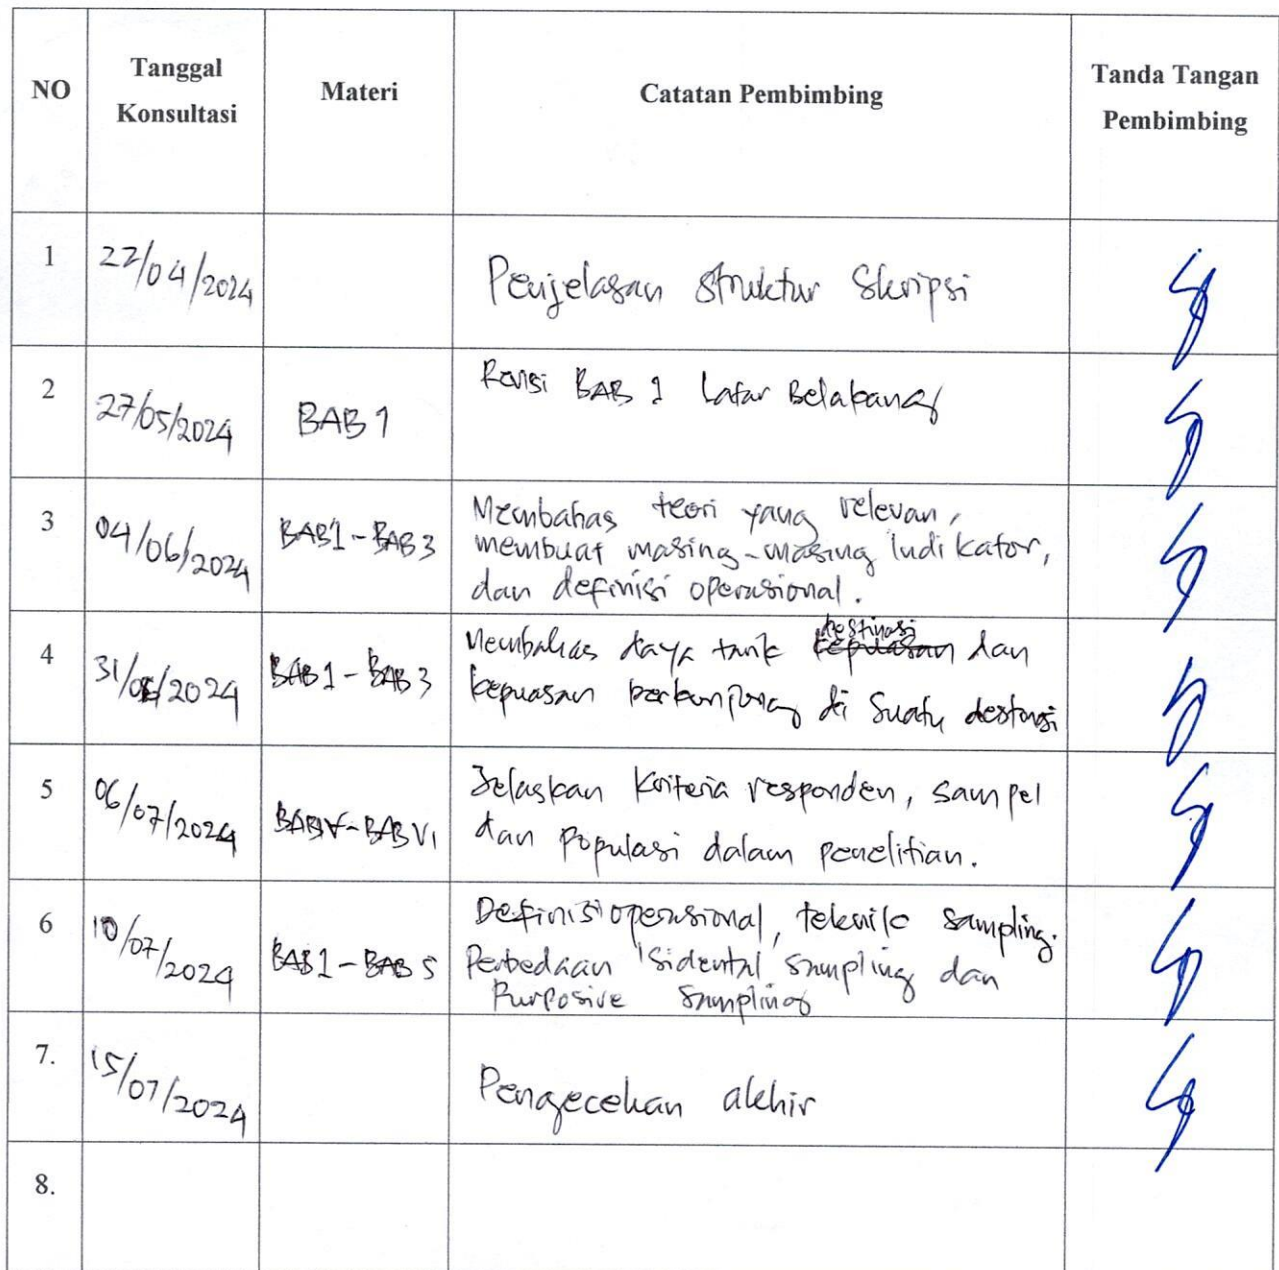 NO
Tanggal
Konsultasi
Materi
Catatan Pembimbing
Tanda Tangan
Pembimbing
1
22/04/2024
Penjelasan Struktur Skripsi
2
27/05/2024
BAB 1
Revisi BAB 1 Latar Belakang
3
04/06/2024
BAB1-BAB3
Membahas teori yang relevan,
membuat masing-masing Indikator,
dan definisi operasional.
4
31/06/2024
BAB1-BAB3
Membahas daya tarik destinasi dan
kepuasan berkunjung di suatu destinasi
5
06/07/2024
BAB VI
Jelaskan Kriteria responden, sampel
dan Populasi dalam penelitian.
6
10/07/2024
BAB1-BAB5
Definisi operasional, teknik sampling.
Perbedaan Isidental sampling dan
Purposive Sampling
7.
15/07/2024
Pengecekan akhir
8.